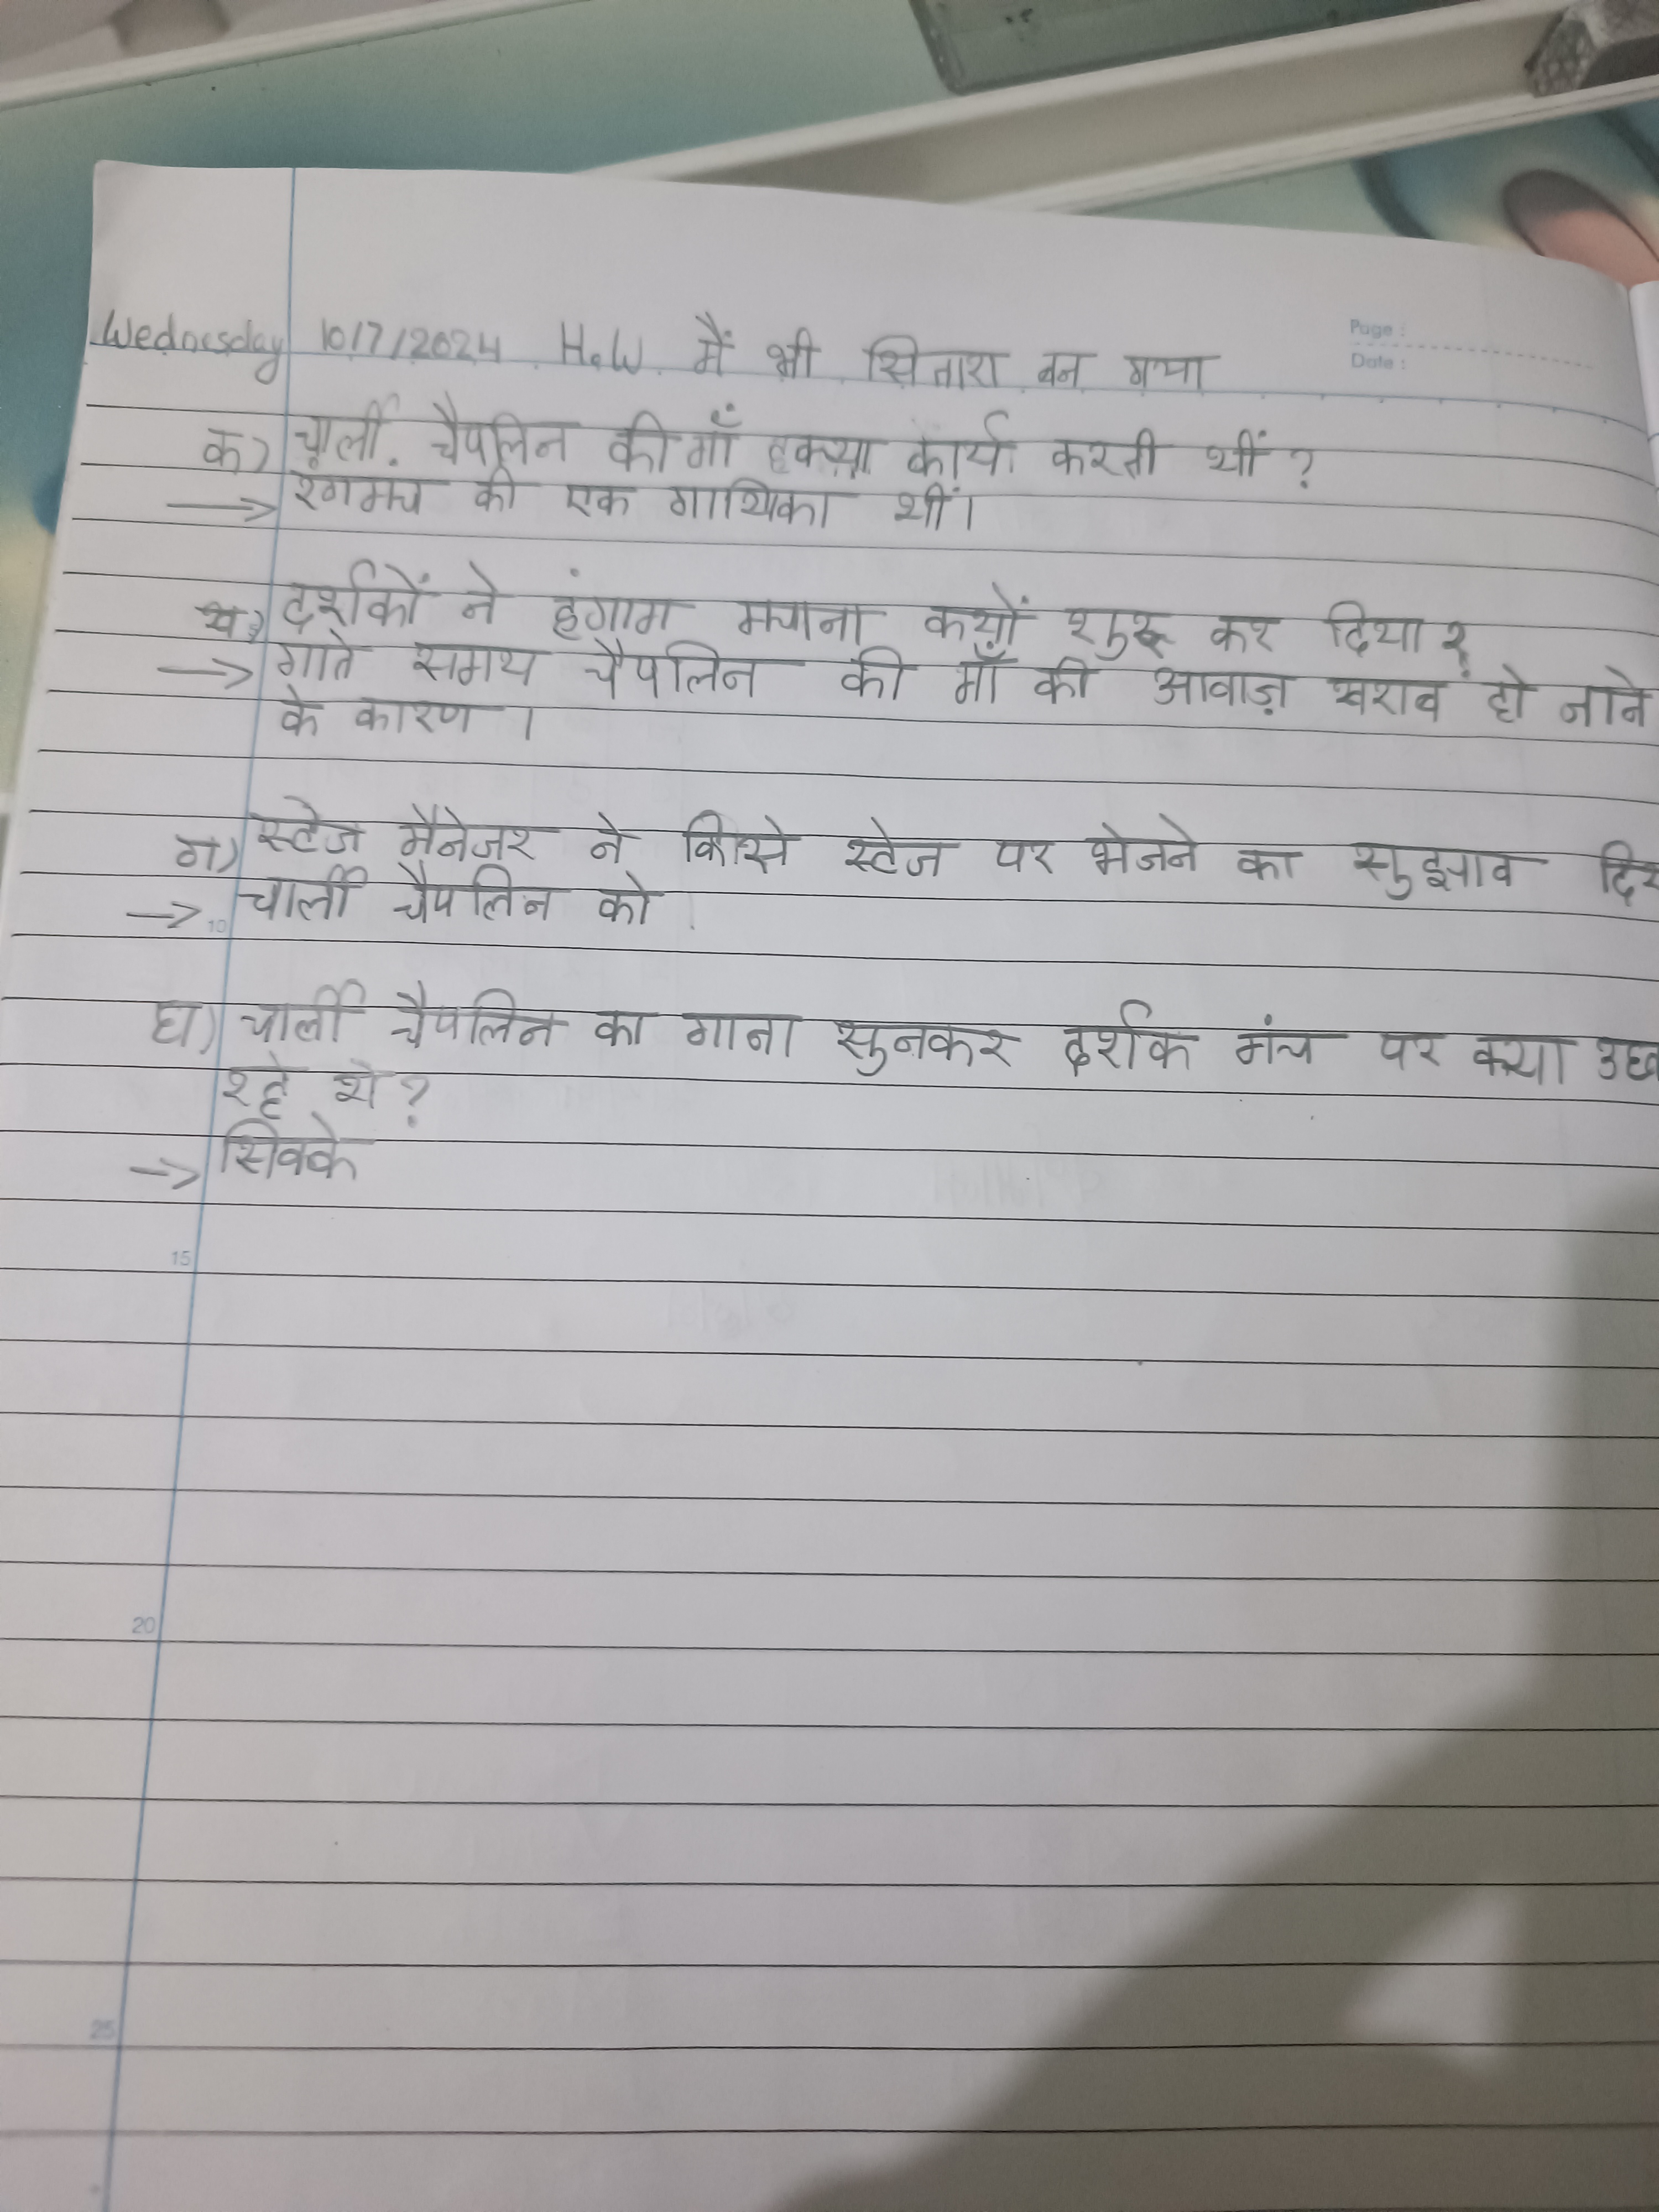 Page :
Date :
Wednesday 10/7/2024 H.W. मैं भी सितारा बन गया
क) चार्ली चैपलिन की माँ क्या कार्य करती थीं ?
→ रंगमंच की एक गायिका थीं।
ख) दर्शकों ने हंगाम मचाना क्यों शुरू कर दिया ?
→ गाते समय चैपलिन की माँ की आवाज़ खराब हो जाने
के कारण ।
ग) स्टेज मैनेजर ने किसे स्टेज पर भेजने का सुझाव
→ चार्ली चैपलिन को
10
घ) चार्ली चैपलिन का गाना सुनकर दर्शक मंच पर क्या
रहे थे ?
→ सिक्के
15
20
25